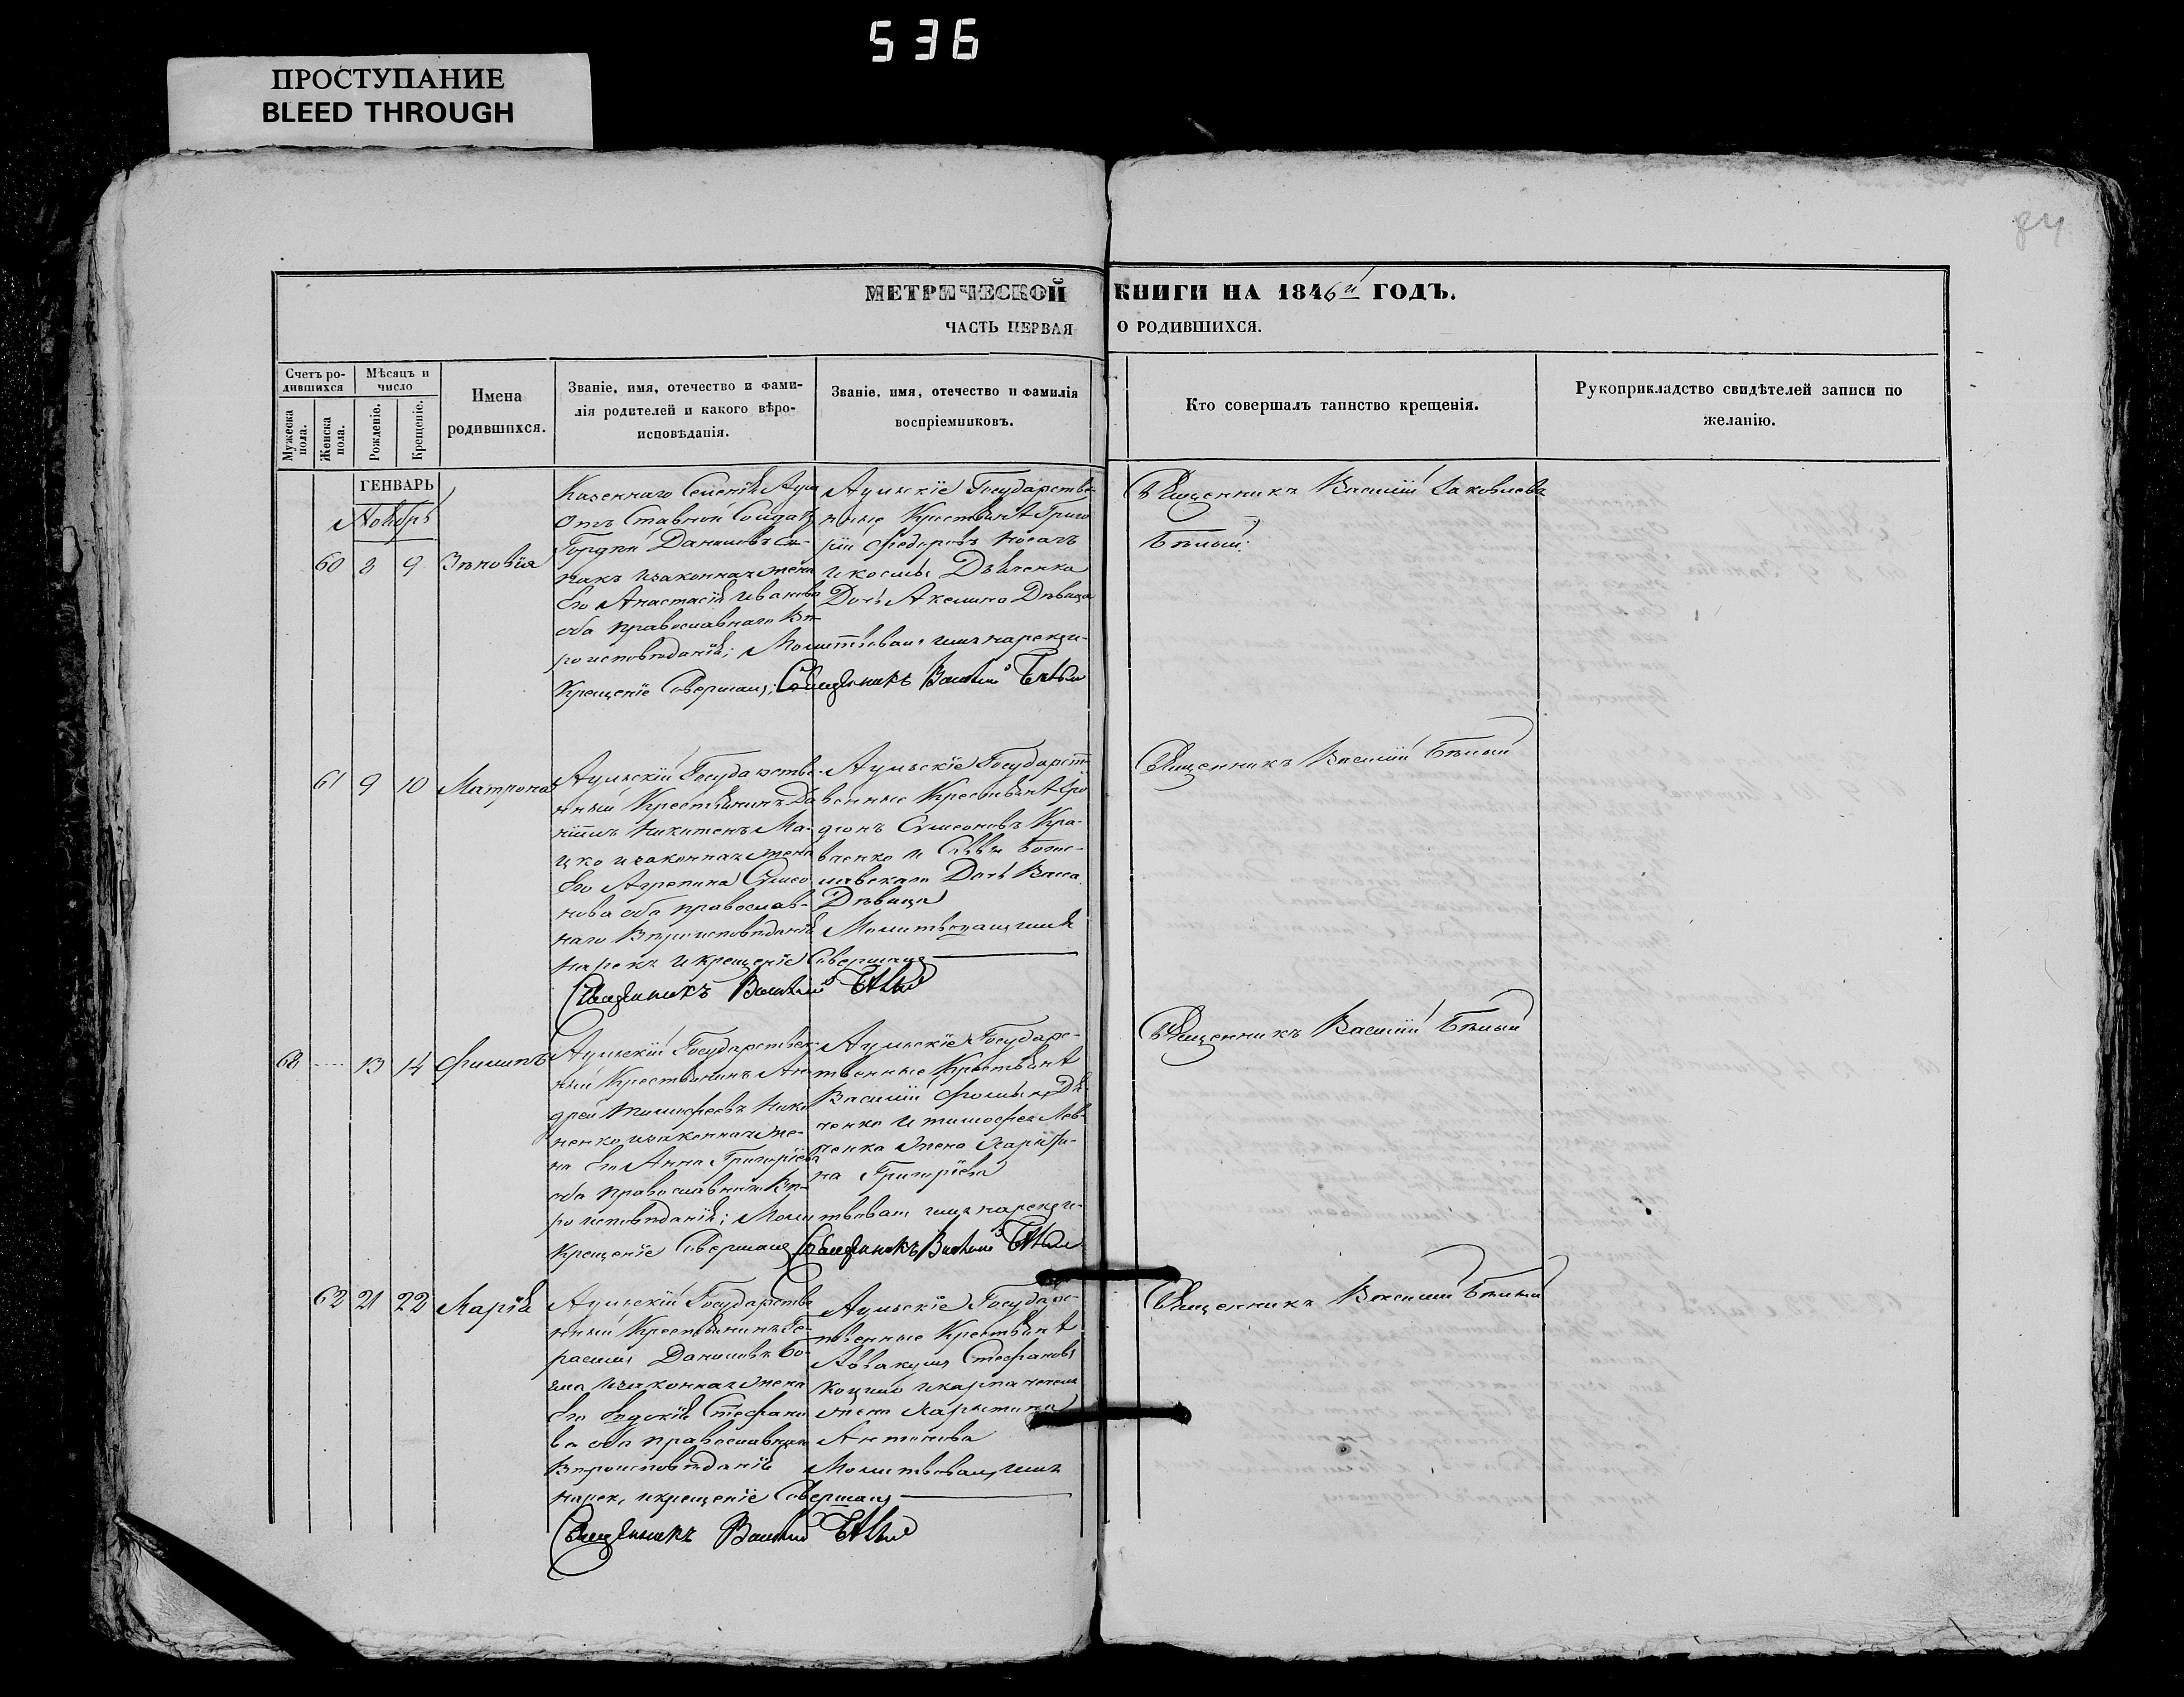 536
ПРОСТУПАНИЕ
BLEED THROUGH
84
МЕТРИЧЕСКОЙ КНИГИ НА 1846й ГОДЪ.
ЧАСТЬ ПЕРВАЯ О РОДИВШИХСЯ.
Счетъ ро-
дившихся
Мужеска пола.
Женска пола.
Мѣсяцъ и
число
Рожденіе.
Крещеніе.
Имена
родившихся.
Званіе, имя, отечество и фами-
лія родителей и какого вѣро-
исповѣданія.
Званіе, имя, отечество и фамилія
воспріемниковъ.
Кто совершалъ таинство крещенія.
Рукоприкладство свидѣтелей записи по
желанію.
ГЕНВАРЬ
Ноябрь
60 8 9 Зѣновія
Казеннаго Селенія
Отъ Ставной Солдатъ
Гордѣй Даниловъ
изаконная жена
Его Анастасія Иванова
оба православнаго Вѣ-
роисповѣданія; Молитвовалъ имя нарекъ и-
Крещеніе Совершалъ; Священникъ Василій Бѣлый
Аульскіе Государстве-
нные Крестьяне Григо
рій Федоровъ Носачъ
и космы Дѣяченка
Дочь Акелина Дѣвица
Священникъ Василій Іаковлевъ
Бѣлый.
61 9 10 Матрона
Аульскій Государстве-
нный Крестьянинъ Да
ніилъ Никитенъ Ма-
цко изаконная жена
Его Агрепина Симео
нова оба православ-
наго Вѣроисповѣданія
нарекъ и крещеніе Совершалъ
Священникъ Василій Бѣлый
Аульскіе Государст-
венные Крестьяне
діонъ Симеоновъ Кра-
вченко и Саввы Боже-
Дочь Васса
Дѣвица
Молитвовалъ имя
Священникъ Василій Бѣлый
68 13 14 Филипъ
Аульскій Государствен-
ный Крестьянинъ Ан
дрей Тимофеевъ Нико
ненко изаконная же-
на Его Анна Григоріева
оба православнаго Вѣ-
роисповѣданія; Молитвовалъ имя нарекъ и-
Крещеніе Совершалъ Священникъ Василій Бѣлый
Аульскіе Государс-
твенные Крестьяне
Василій Фоминъ Дя-
ченко и тимофея Лев-
ченка жена Харити-
на Григоріева
Священникъ Василій Бѣлый
62 21 22 Марія
Аульскій Государстве
нный Крестьянинъ Ге-
расимъ Даниловъ
изаконная жена
Его Евдокія Стефано
ва оба православнаго
Вѣроисповѣданія
нарекъ, и крещеніе Совершалъ
Священникъ Василій Бѣлый
Аульскіе Государс-
твенные Крестьяне
Аввакумъ Стефановъ
Коцило и карпа
жена Харитина
Антонова
Молитвовалъ, имя
Священникъ Василій Бѣлый